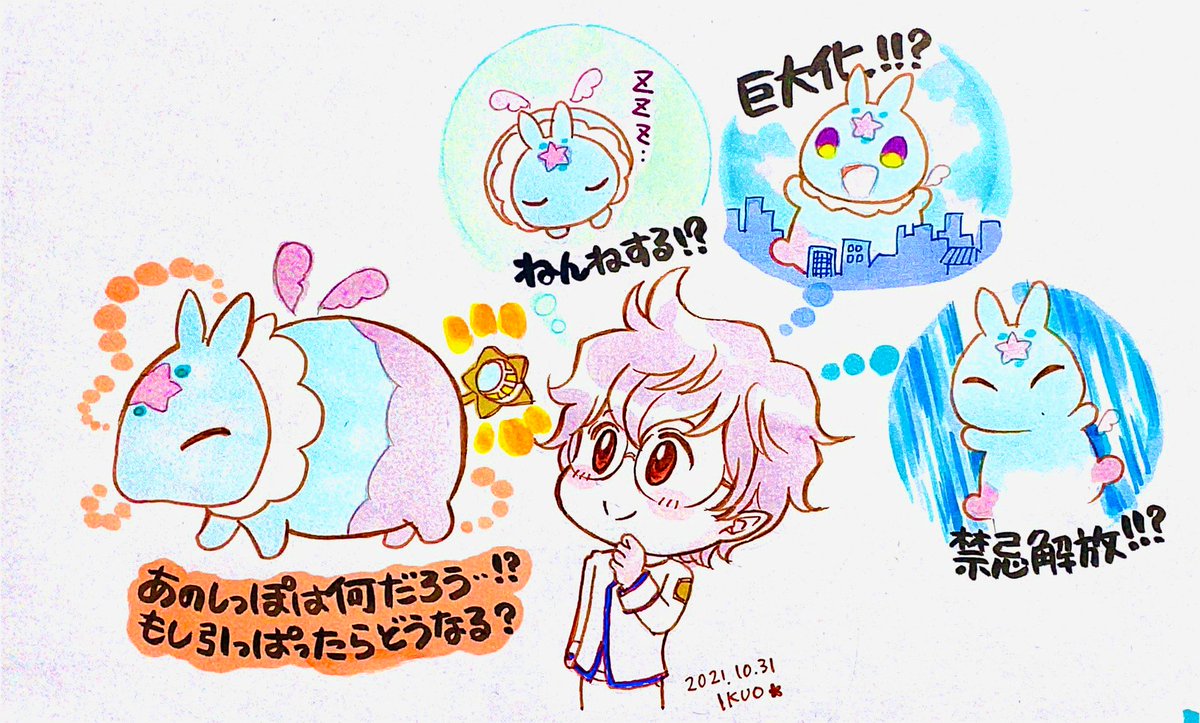 zzz...
ねんねする!?
巨大化!!!?
禁忌解放!!!?
あのしっぽは何だろう…!?
もし引っぱったらどうなる?
2021.10.31
IKUO